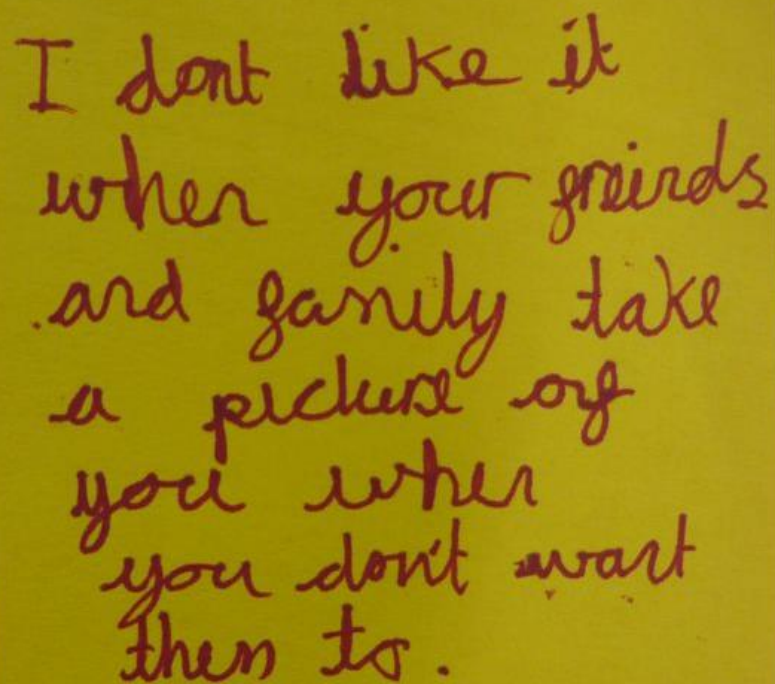 I dont like it
when your freinds
and family take
a picture of
you when
you don't want
them to.